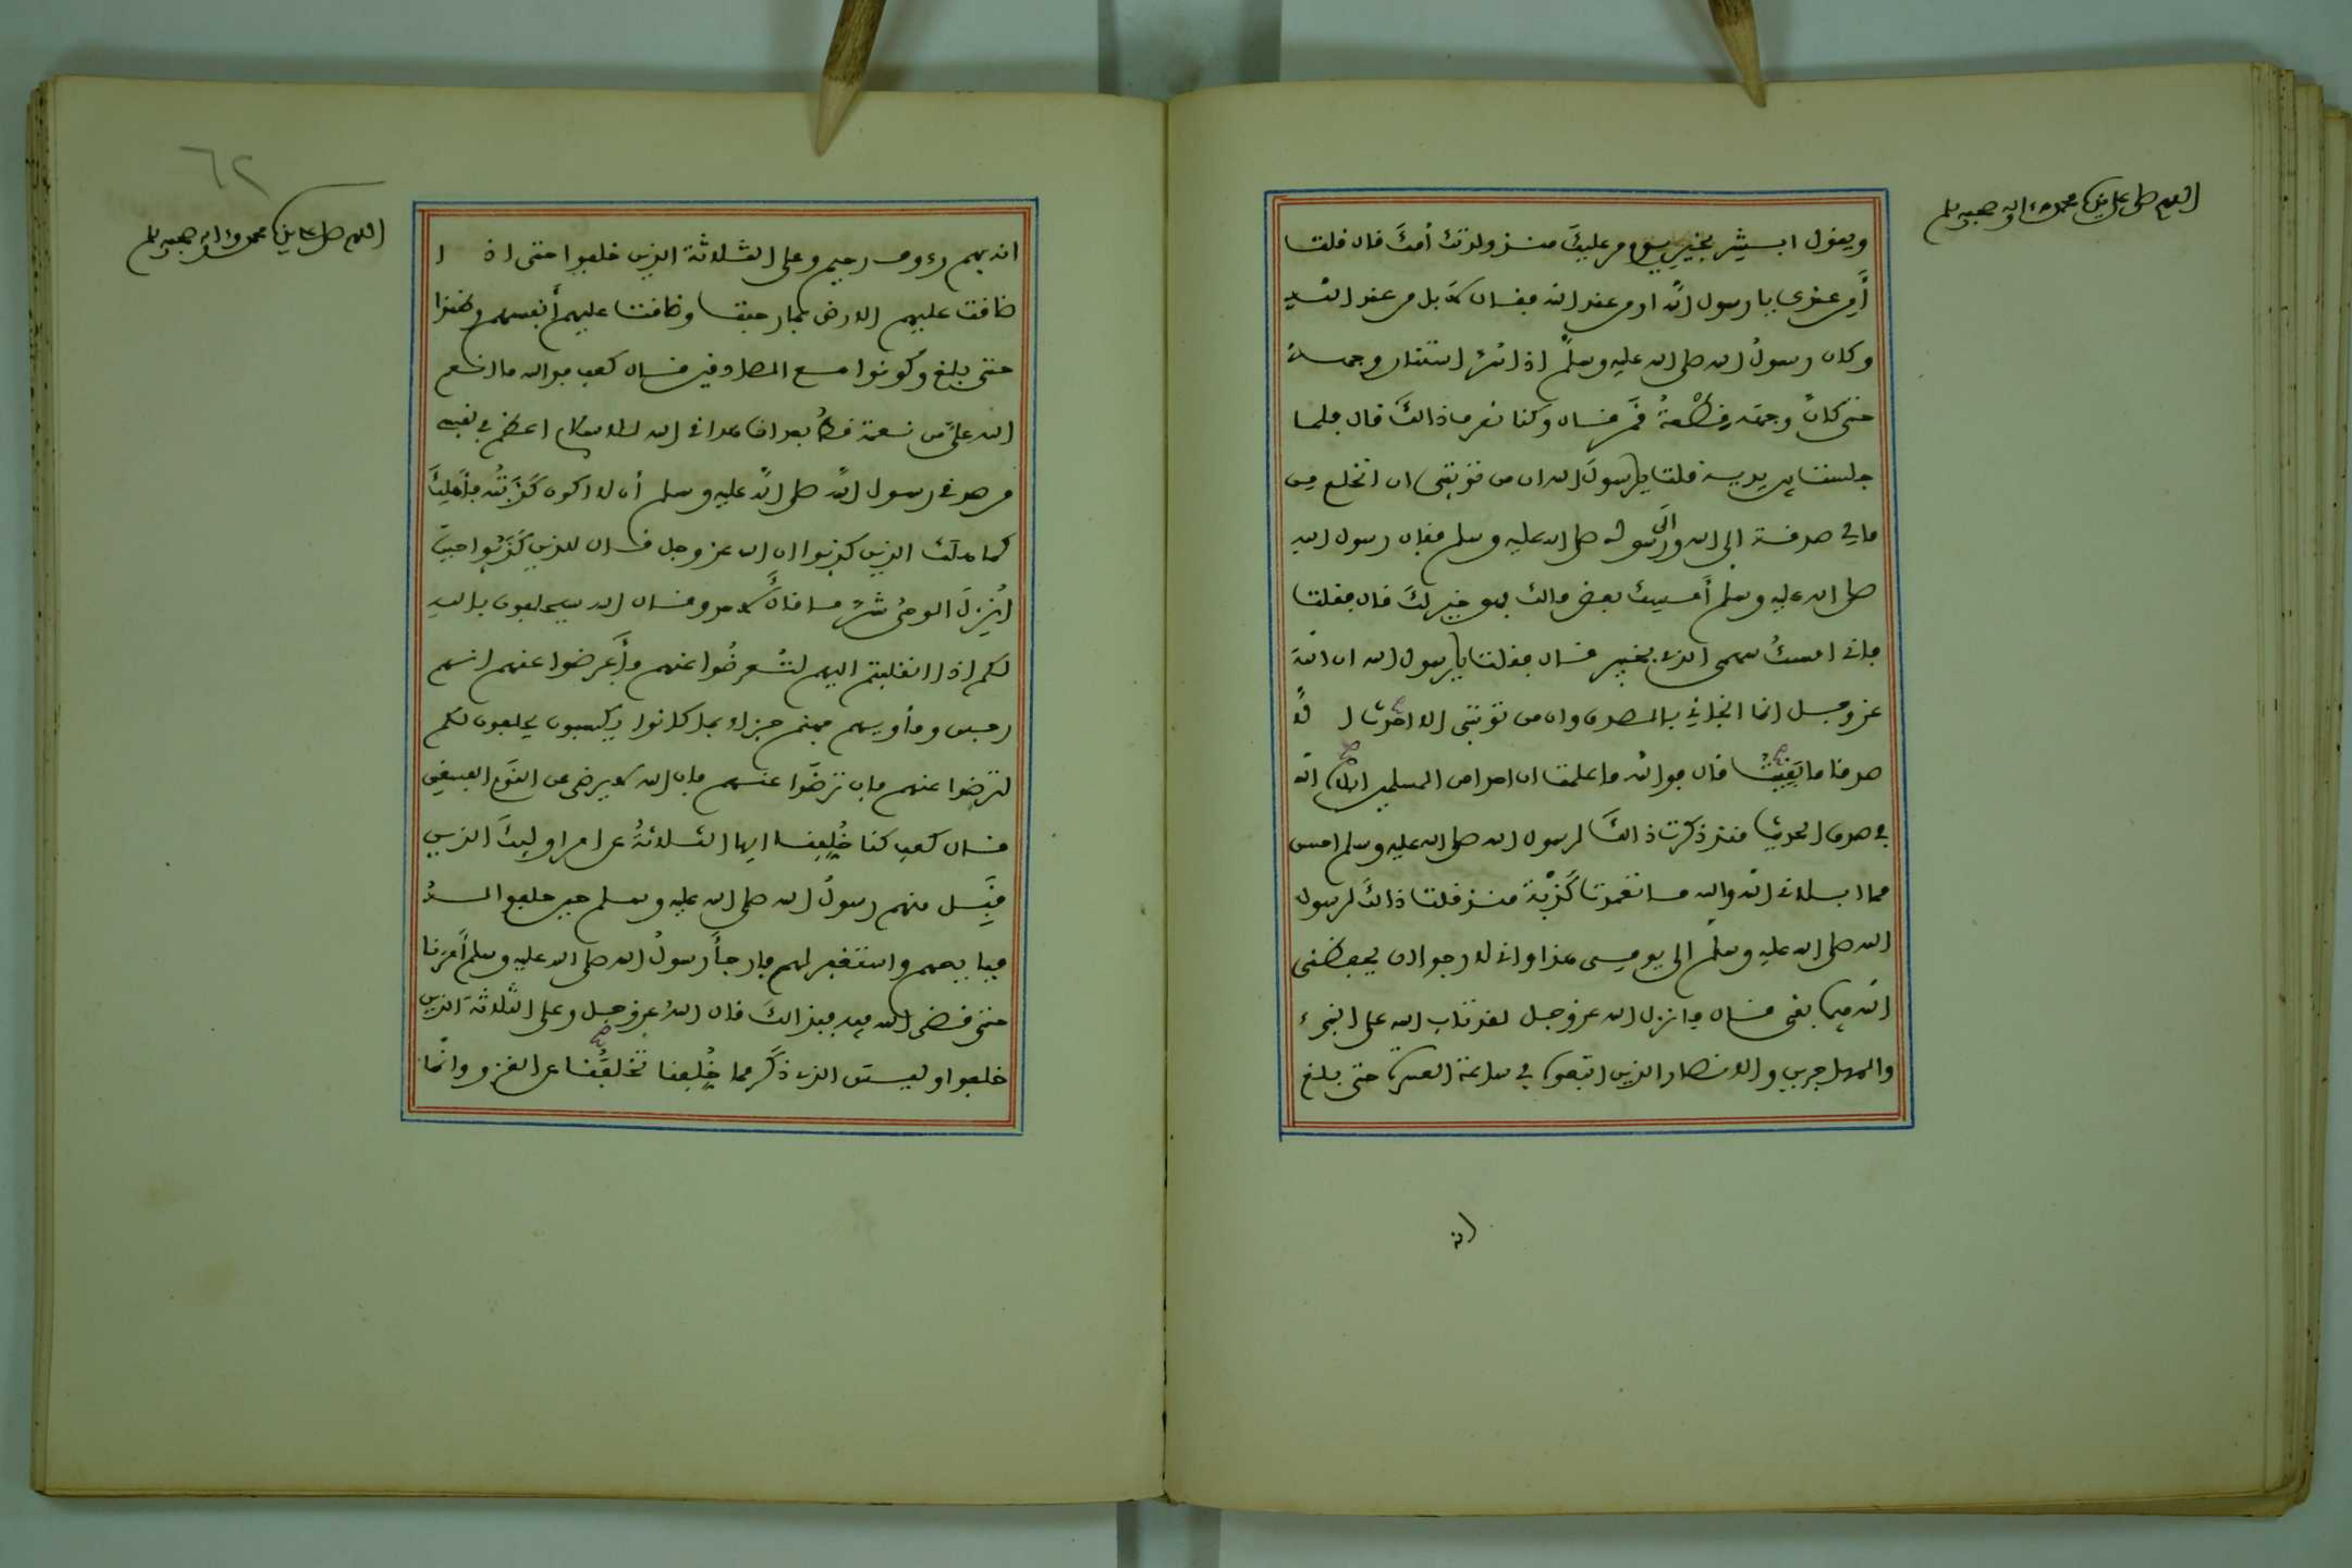 اللهم صل على سيدنا محمد وءاله وصحبه وسلم
ويقول ابشر بخير يوم مر عليك منذ ولدتك أمك قال قلت
أمن عندك يا رسول الله او من عند الله فقال لا بل من عند الله
وكان رسول الله صلى الله عليه وسلم اذا سر استنار وجهه
حتى كان وجهه قطعة قمر قال وكنا نعرف ذالك قال فلما
جلست بين يديه قلت يا رسول الله ان من توبتى ان انخلع من
مالي صدقة الى الله والى رسوله صلى الله عليه وسلم فقال رسول الله
صلى الله عليه وسلم أمسك بعض مالك فهو خير لك قال فقلت
فانى امسك سهمى الذي بخيبر قال فقلت يا رسول الله ان الله
عز وجل انما انجاني بالصدق وان من توبتى الا احدث الا
صدقا ما بقيت قال فوالله ما علمت ان احدا من المسلمين ابلاه الله
في صدق الحديث منذ ذكرت ذالك لرسول الله صلى الله عليه وسلم احسن
مما ابلانى الله والله ما تعمدت كذبة منذ قلت ذالك لرسول
الله صلى الله عليه وسلم الى يومى هذا وانى لارجوا ان يحفظنى
الله فيما بقى قال فانزل الله عز وجل لقد تاب الله على النبىء
والمهاجرين والانصار الذين اتبعوه في ساعة العسرة حتى بلغ
انه
٦٢
اللهم صل على سيدنا محمد وءاله وصحبه وسلم
انه بهم رءوف رحيم وعلى الثلاثة الذين خلفوا حتى اذا
ضاقت عليهم الارض بما رحبت وضاقت عليهم أنفسهم وظنوا
حتى بلغ وكونوا مع الصادقين قال كعب فوالله ما انعم
الله علي من نعمة قط بعد اذ هدانى الله للاسلام اعظم في نفسى
من صدقى رسول الله صلى الله عليه وسلم أن لا اكون كذبته فأهلك
كما هلك الذين كذبوا ان الله عز وجل قال للذين كذبوا حين
انزل الوحى شر ما قال لاحد وقال الله سيحلفون بالله
لكم اذا انقلبتم اليهم لتعرضوا عنهم فأعرضوا عنهم انهم
رجس ومأويهم جهنم جزاء بما كانوا يكسبون يحلفون لكم
لترضوا عنهم فان ترضوا عنهم فان الله لا يرضى عن القوم الفسقين
قال كعب كنا خلفنا ايها الثلاثة عن امر اوليك الذين
قبل منهم رسول الله صلى الله عليه وسلم حين حلفوا له
فبايعهم واستغفر لهم فارجأ رسول الله صلى الله عليه وسلم أمرنا
حتى قضى الله فيه فبذالك قال الله عز وجل وعلى الثلاثة الذين
خلفوا وليس الذي ذكر مما خلفنا تخلفنا عن الغزو وانما